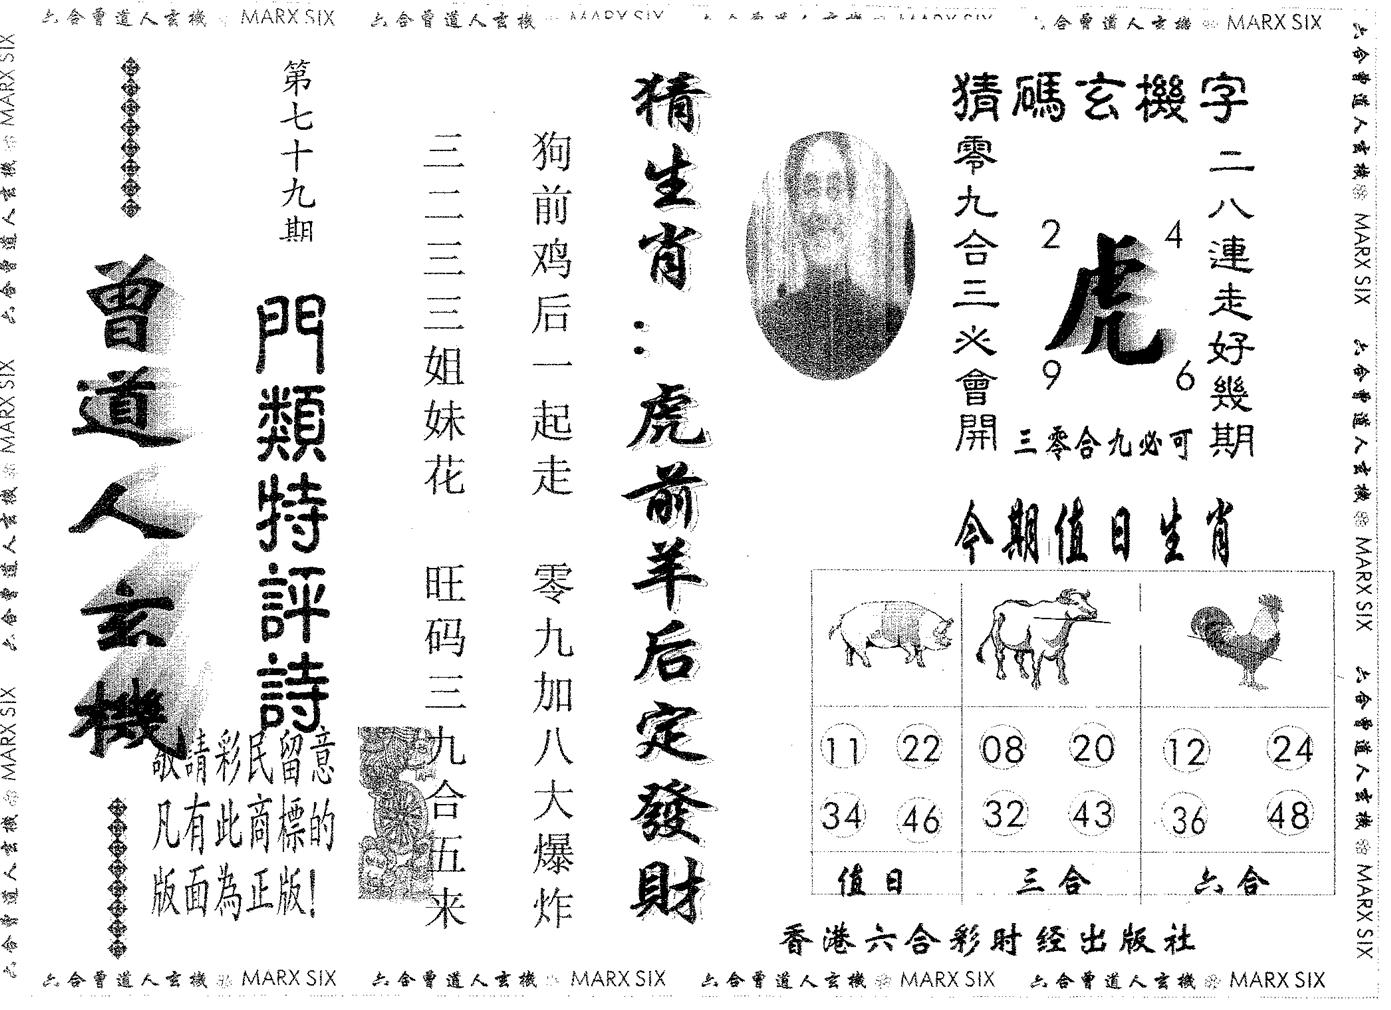 六合曾道人玄機 MARX SIX
六合曾道人玄機
六合曾道人玄機 MARX SIX
猜碼玄機字
二八連走好幾期
2 4
虎
9 6
零九合三必會開
三零合九必可
猜生肖：虎前羊后定發財
狗前鸡后一起走 零九加八大爆炸
三二三三姐妹花 旺码三九合五来
第七十九期
門類特評詩
曾道人玄機
敬請彩民留意
凡有此商標的
版面為正版！
今期值日生肖
11 22 08 20 12 24
34 46 32 43 36 48
值日 三合 六合
香港六合彩时经出版社
六合曾道人玄機 MARX SIX
六合曾道人玄機 MARX SIX
六合曾道人玄機 MARX SIX
六合曾道人玄機 MARX SIX
六合曾道人玄機 MARX SIX
六合曾道人玄機 MARX SIX
六合曾道人玄機 MARX SIX
六合曾道人玄機 MARX SIX
六合曾道人玄機 MARX SIX
六合曾道人玄機 MARX SIX